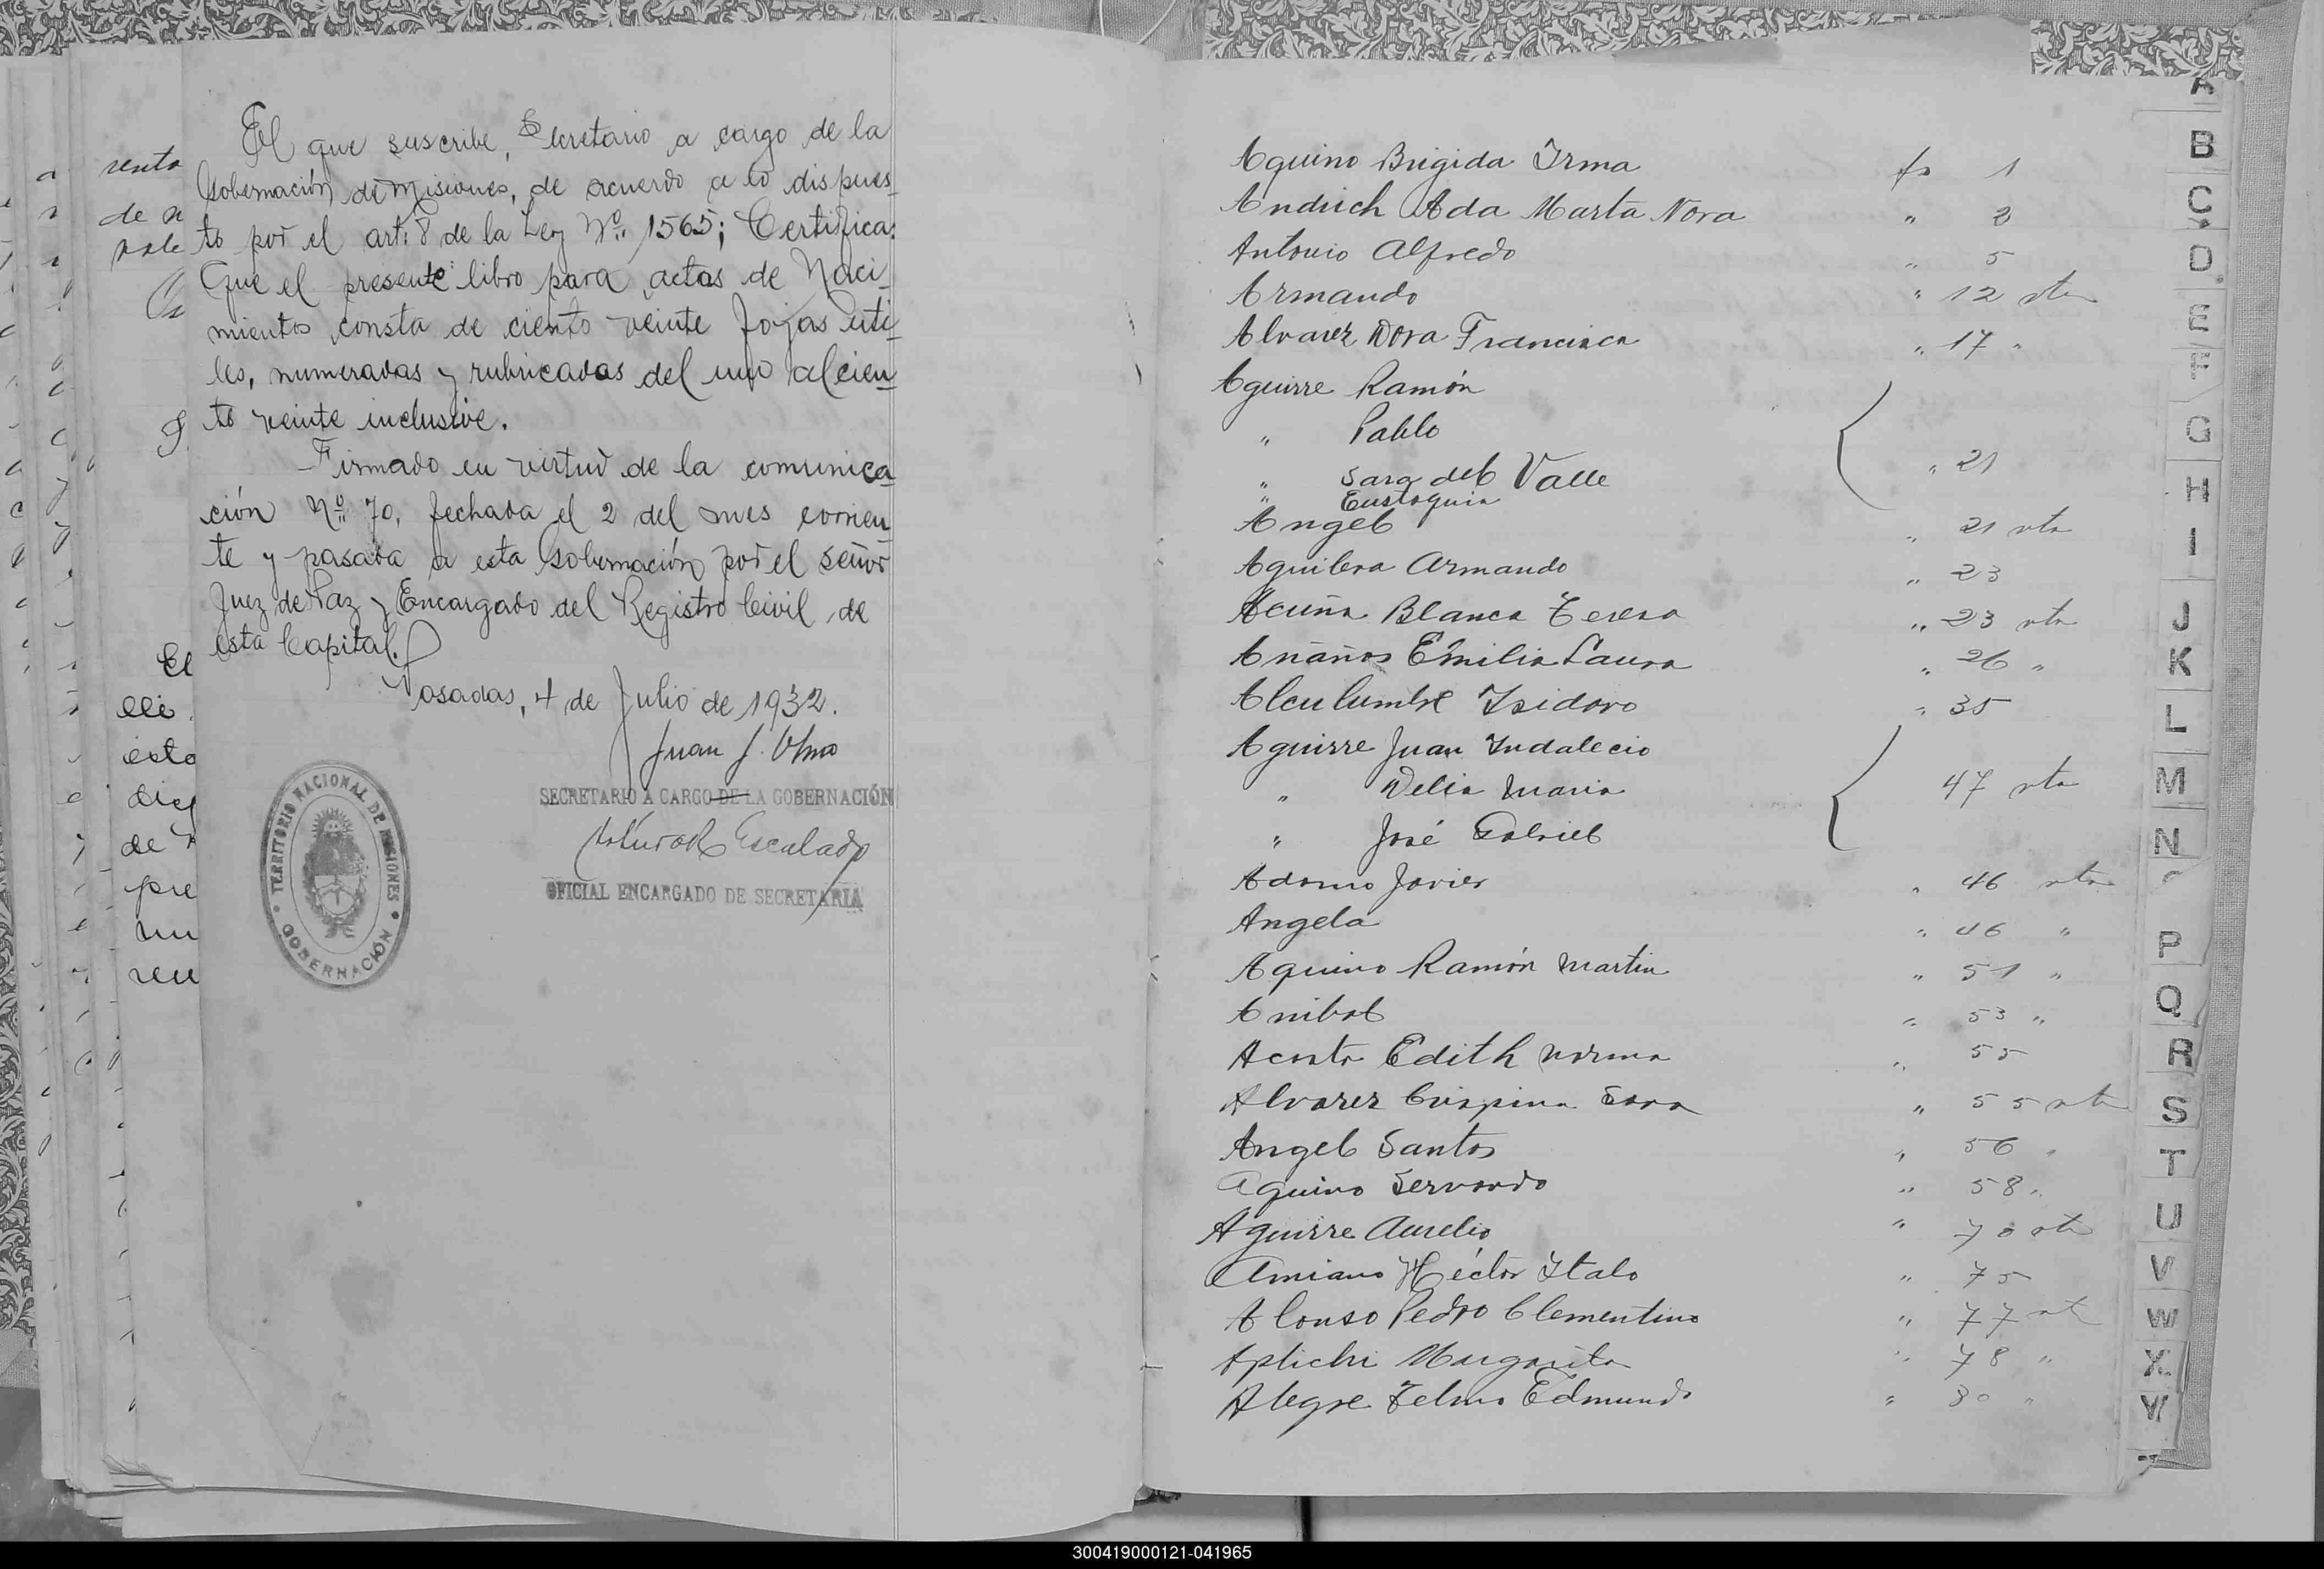 El que suscribe, Secretario a cargo de la
Gobernación de Misiones, de acuerdo a lo dispues-
to por el art: 8 de la Ley Nº 1565; Certifica:
Que el presente libro para actas de Naci-
mientos consta de ciento veinte fojas úti-
les, numeradas y rubricadas del uno al cien-
to veinte inclusive.
Firmado en virtud de la comunica-
ción Nº 70, fechada el 2 del mes corrien-
te y pasada a esta Gobernación por el señor
Juez de Paz y Encargado del Registro Civil de
esta Capital.
Posadas, 4 de Julio de 1932.
Juan J.
SECRETARIO A CARGO DE LA GOBERNACIÓN
Escalada
OFICIAL ENCARGADO DE SECRETARIA
TERRITORIO NACIONAL DE MISIONES
GOBERNACIÓN
Aquino Brigida Irma fo 1
Andrich Ada Marta Nora " 2
Antonio Alfredo " 5
Armando " 12 vta
Alvarez Dora Francisca " 17 "
Aguirre Ramón
" Pablo
" Sara del Valle " 21
" Eustaquia
Angel " 21 vta
Aguilera Armando " 23
Acuña Blanca Teresa " 23 vta
Añaños Emilia Laura " 26 "
Alculumbre Isidoro " 35
Aguirre Juan Indalecio
" Delia Maria 47 vta
" José Gabriel
Adorno Javier " 46 vta
Angela " 46 "
Aquino Ramón Martin " 51 "
Anibal " 53 "
Acosta Edith Norma " 55
Alvarez Crispina Sara " 55 vta
Angel Santos " 56 "
Aquino Servando " 58 "
Aguirre Aurelio " 70 vta
Amiano Héctor Italo " 75
Alonso Pedro Clementino " 77 vta
Aplichi Margarita " 78 "
Alegre Telmo Edmundo " 80 "
A
B
C
D
E
F
G
H
I
J
K
L
M
N
P
Q
R
S
T
U
V
W
X
300419000121-041965